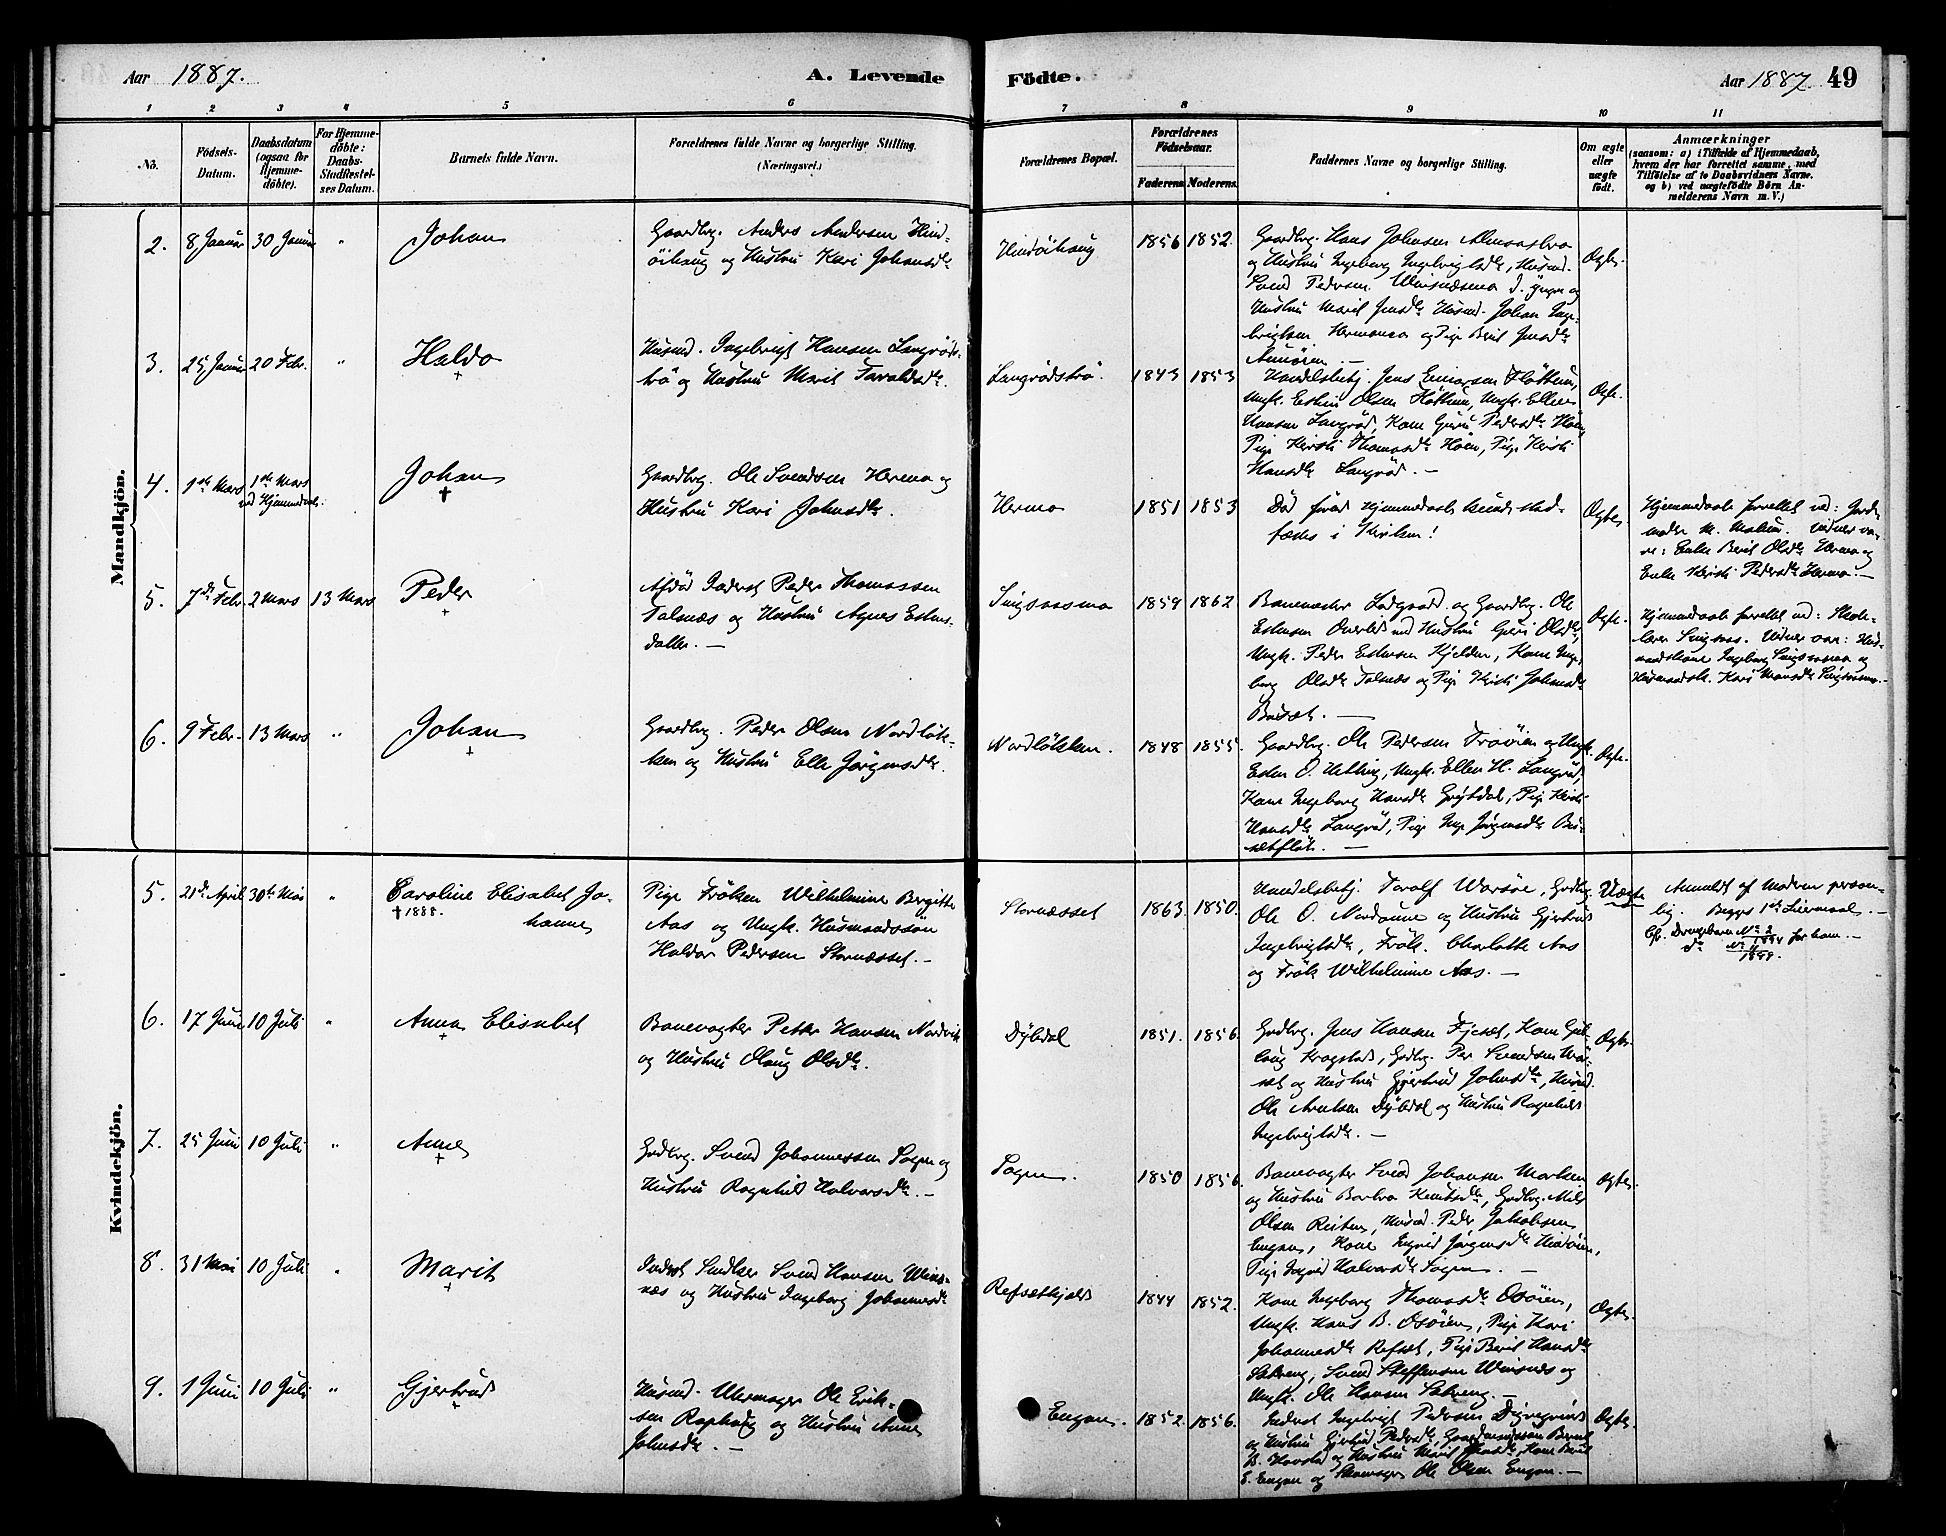 Aar 1887.
A. Levende
Födte.
Aar 1887
49
1 2 3 4 5 6 7 8 9 10 11
No.
Födsels-
Datum.
Daabsdatum
(ogsaa for
Hjemme-
döbte).
For Hjemme-
döbte:
Daabs-
Stadfestel-
ses Datum.
Barnets fulde Navn.
Forældrenes fulde Navne og borgerlige Stilling.
(Næringsvei.)
Forældrenes Bopæl.
Forældrenes
Födselsaar.
Faderens
Moderens
Faddernes Navne og borgerlige Stilling.
Om ægte
eller
uægte
födt.
Anmærkninger
(saasom: a) i Tilfælde af Hjemmedaab,
hvem der har forrettet samme, med
Tilföielse af to Daabsvidners Navne.
og b) ved uægtefödte Börn An-
melderens Navn m. V.)
Mandkjön.
2. 8 Januar 30 Januar " Johan
Gaardbrg. Anders Andersen Hind-
öihaug og Hustru Kari Johansdtr
Hindöihaug 1856 1852.
Gaardbrg. Hans Johnsen
og Hustru Ingeborg Ingebrigtsdtr, Husmd.
Svend Pedersen og
Hustru Marit Jensdtr Husmd. Johan Inge-
brigtsen Hermoen og Pige Berit Jensdtr
Ægte.
3. 25 Januar 20 Febr. " Haldo
†
Husmd. Ingebrigt Hansen Langröds-
trö og Hustru Marit Taraldsdtr.
Langrödströ. 1843 1853
Handelsbetj. Jens Flöttum,
Ungk. Esten Olsen Ungk. Ellev
Hansen Langröd, Kone Guru Pedersdtr Höen
Pige Kirsti Thomasdtr Höen, Pige Kirsti
Hansdtr Langröd. —
Ægte.
4. 1ste Mars 1ste Mars
ved Hjemmedaab. Johan
†
Gaardbrg. Ole Svendsen Hermo og
Hustru Kari Johnsdtr.
Hermo 1851 1853
Död förend Hjemmedaab kunde stad-
fæstes i Kirken!
Ægte.
Hjemmedaab forrettet ved: Jorde-
moder M. Vidner va-
re: Enke Berit Olsdtr Hermo og
Enke Kirsti Pedersdtr Hermo. —
5. 7de Febr. 2 Mars 13 Mars Peder
Afdöd Inderst Peder Thomassen
Talsnæs og Hustru Agnes Estens-
datter. —
Singsaasmo 1859 1862
Banemester og Gaardbrg. Ole
Estensen med Hustru Guri Olsdtr,
Ungk. Peder Estensen Kjelden, Kone Inge-
borg Olsdtr Talsnæs og Pige Kirsti Johnsdtr
Busæt. —
Ægte.
Hjemmedaab forrettet ved: Skole-
lærer Singsaas. Vidner var: Hus-
mandskone Ingeborg Singsaasmo og
Husmandsk. Kari Hansdtr Singsaasmo. —
6. 9 Febr. 13 Mars " Johan
†
Gaardbrg. Peder Olsen Nordlök-
ken og Hustru Elle Jörgensdtr.
Nordlökken. 1848 1855.
Gaardbrg. Ole Pedersen Trööien og Ungk.
Esten O. Ungk. Ellev H. Langröd,
Kone Ingeborg Hansdtr Pige Kirsti
Hansdtr Langröd, Pige Inge Jörgensdtr Bu-
sætflöt. —
Ægte.
Kvindekjön.
5. 21de April 30te Mai " Caroline Elisabet Jo-
hanne
† 1888.
Pige Fröken Wilhelmine Bergitte
Aas og Ungk. Husmandssön
Haldor Pedersen Störnæsset. —
Störnæsset 1863. 1850.
Handelsbetj. Toralf Gdbrg.
Ole O. Nordaune og Hustru Gjertrud
Ingebrigtsdtr, Frök. Charlotte Aas
og Frök Wilhelmine Aas. —
Uægte
Anmeldt af Moderen person-
lig. Begges 1ste Leiermaal. —
Cfr. Drengebarn No 2 1894 for ham. —
do No 11 1899.
6. 17 Juni 10 Juli " Anna Elisabet
†
Banevogter Petter Hansen Nordvik
og Hustru Olaug Olsdtr.
Dybdal 1851. 1856.
Gdbrg. Jens Hansen Fjeset, Kone Gub-
laug Krogstad, Gdbrg. Per Svendsen
og Hustru Gjertrud Johnsdtr, Husmd.
Ole Arntsen Dybdal og Hustru Ragnhild
Ingebrigtsdtr. —
Ægte.
7. 25 Juni 10 Juli " Anne
†
Gdbrg. Svend Johannessen Sogn og
Hustru Ragnhild Halvorsdtr. —
Sogn. 1850 1856.
Banevogter Svend Johansen Morken
og Hustru Barbro Knutsdtr, Gdbrg. Nils
Olsen Reiten, Husmd. Peder Jakobsen
Engan, Kone Ingrid Jörgensdtr Hindöien,
Pige Ingrid Halvorsdtr Sogn. —
Ægte.
8. 31 Mai 10 Juli " Marit
†
Inderst Snedker Svend Hansen Wins-
næs og Hustru Ingeborg Johannesdtr
Refsæthjald 1844 1852.
Kone Ingeborg Thomasdtr Osöien,
Ungk. Hans B. Osöien, Pige Kari
Johannesdtr Refset, Pige Berit Hansdtr
Svend Steffensen Winsnæs og
Ungk. Ole Hansen —
Ægte.
9. 1 Juni 10 Juli " Gjertrud
†
Husmd. Uhrmager Ole Erik-
sen Raphaug og Hustru Anne
Johnsdtr. —
Engan. 1852. 1856.
Inderst Ingebrigt Pedersen
og Hustru Gjertrud Pedersdtr, Gaardmandssön Bernt
B. Hovstad og Hustru Marit Jensdtr, Kone Berit
E. Engan og Skomager Ole Olsen Engan. —
Ægte.